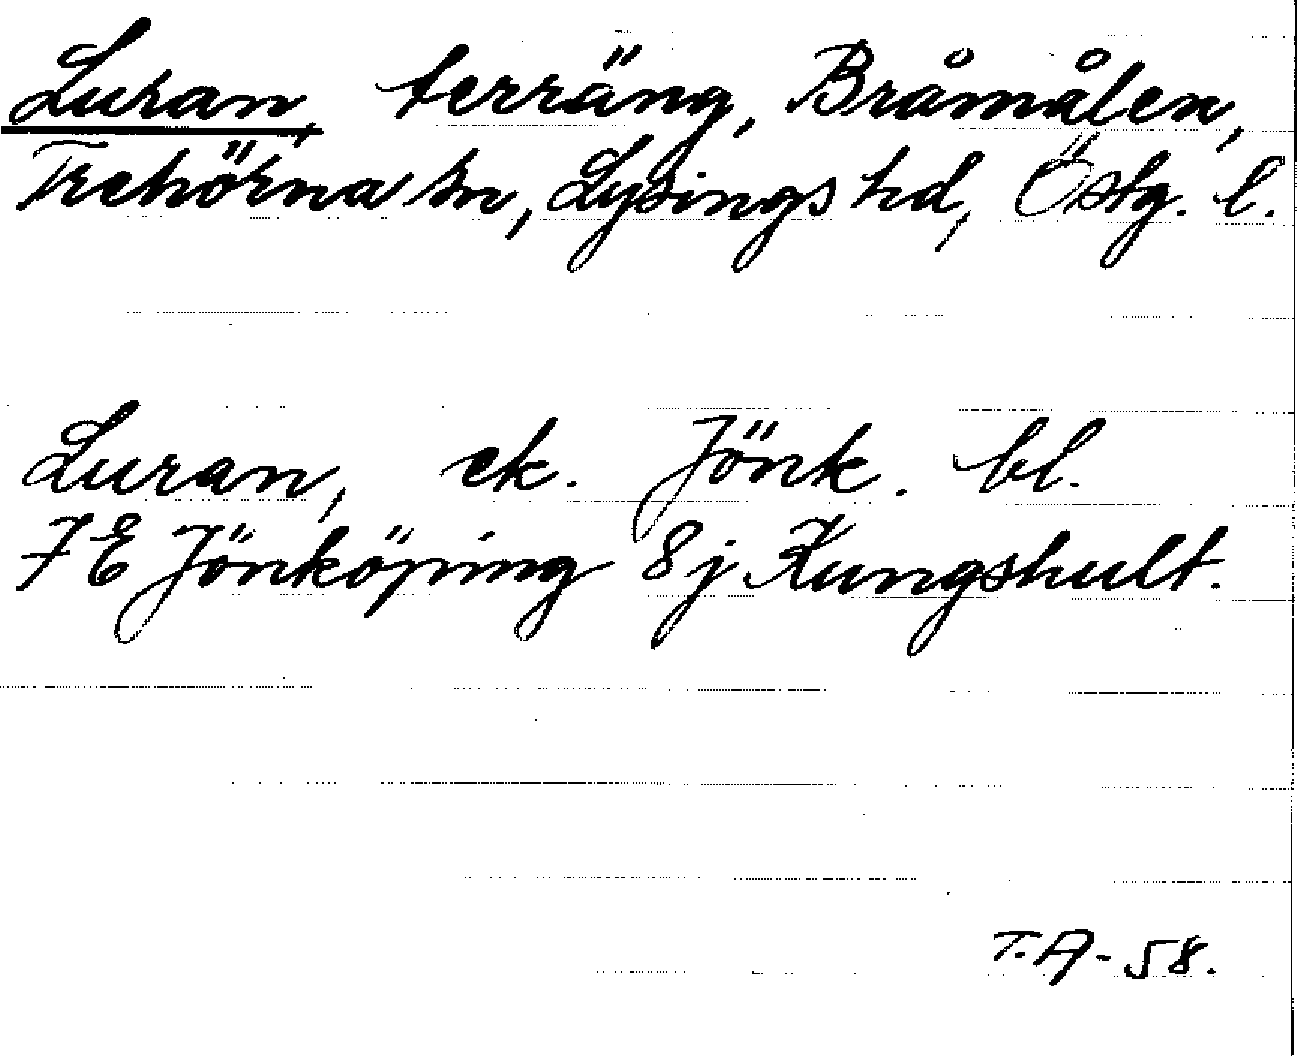 Luran, terräng, Bråmålen,
Trehörna sn, Lysings hd, Östg. l.
Luran, ek. Jönk. bl.
7E Jönköping 8j Kungshult.
T.A-58.